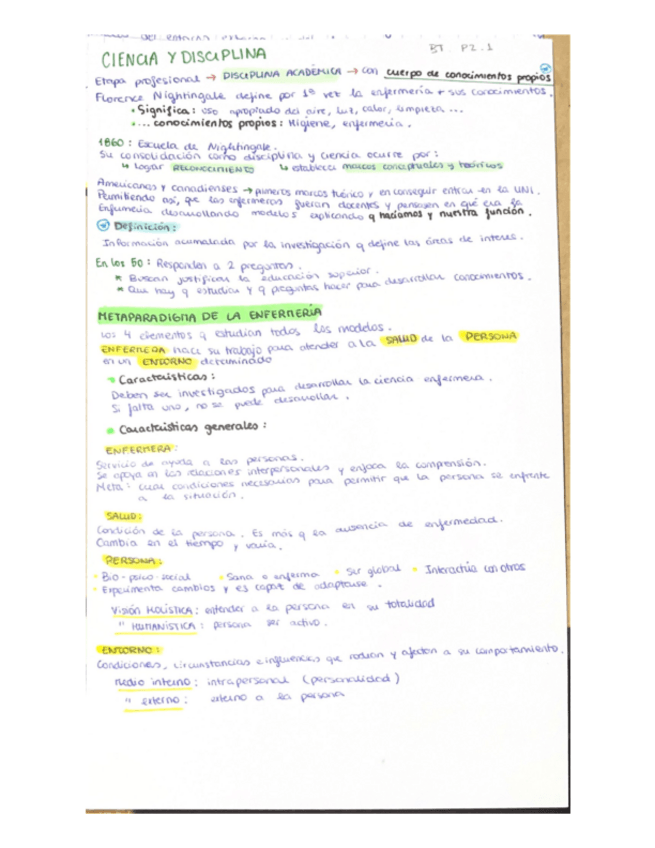 BT. P2.1
CIENCIA Y DISCIPLINA
Etapa profesional → DISCIPLINA ACADÉMICA → con cuerpo de conocimientos propios
Florence Nightingale define por 1ª vez la enfermería + sus conocimientos.
• Significa: uso apropiado del aire, luz, calor, limpieza ...
• ... conocimientos propios: Higiene, enfermería.
1860: Escuela de Nightingale.
Su consolidación como disciplina y ciencia ocurre por:
↳ lograr RECONOCIMIENTO ↳ establecer marcos conceptuales y teóricos
Americanas y canadienses → primeros marcos teórico y en conseguir entrar en la UNI.
Permitiendo así, que las enfermeras fueran docentes y pensasen en qué era la
Enfermería desarrollando modelos explicando q hacíamos y nuestra función.
Definición:
Información acumulada por la investigación q define las áreas de interés.
En los 50: Responden a 2 preguntas.
* Buscan justificar la educación superior.
* Que hay q estudiar y q preguntas hacer para desarrollar conocimientos.
METAPARADIGMA DE LA ENFERMERÍA
Los 4 elementos q estudian todos los modelos.
ENFERMERA hace su trabajo para atender a la SALUD de la PERSONA
en un ENTORNO determinado
• Características:
Deben ser investigados para desarrollar la ciencia enfermera.
Si falta uno, no se puede desarrollar.
• Características generales:
ENFERMERA:
Servicio de ayuda a las personas.
Se apoya en las relaciones interpersonales y enfoca la comprensión.
Meta: crear condiciones necesarias para permitir que la persona se enfrente
a la situación.
SALUD:
Condición de la persona. Es más q la ausencia de enfermedad.
Cambia en el tiempo y varía.
PERSONA:
• Bio-psico-social • Sana o enferma • Ser global • Interactúa con otros
• Experimenta cambios y es capaz de adaptarse.
Visión HOLÍSTICA: entender a la persona en su totalidad
" HUMANÍSTICA: persona ser activo.
ENTORNO:
Condiciones, circunstancias e influencias que rodean y afectan a su comportamiento.
Medio interno: intrapersonal (personalidad)
" externo: externo a la persona